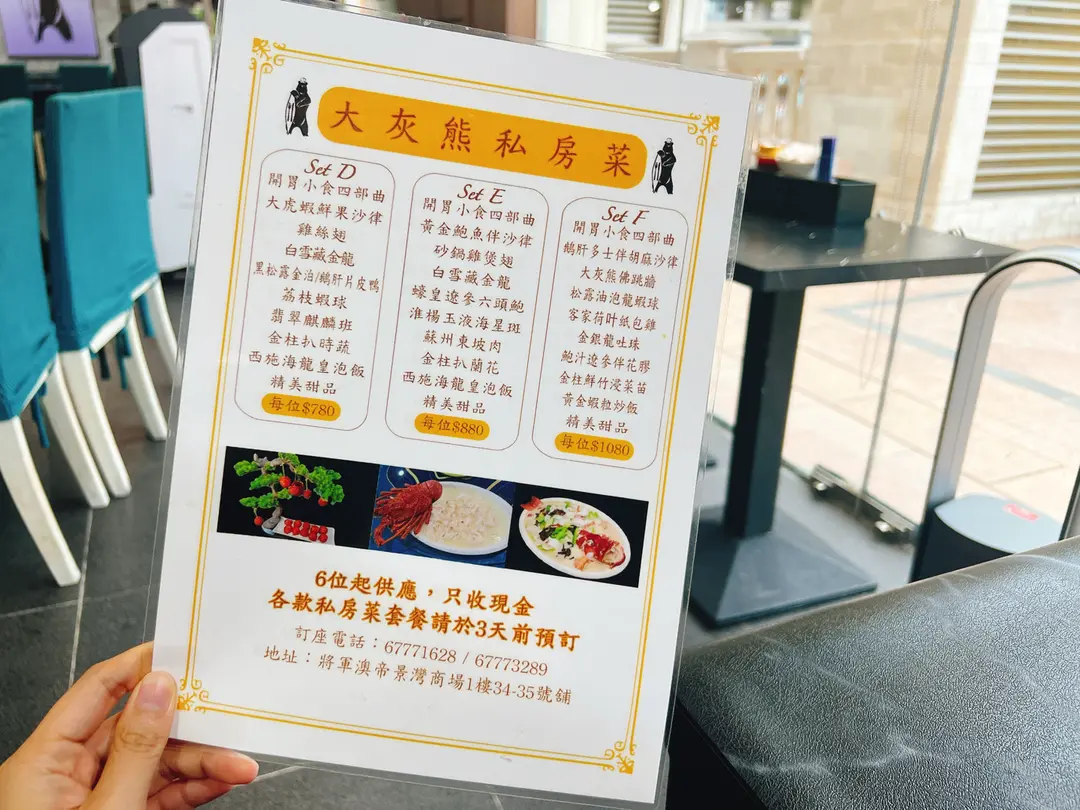 大灰熊私房菜
Set D
開胃小食四部曲
大虎蝦鮮果沙律
雞絲翅
白雪藏金龍
黑松露金泊/鵝肝片皮鴨
荔枝蝦球
翡翠麒麟班
金柱扒時蔬
西施海龍皇泡飯
精美甜品
每位$780
Set E
開胃小食四部曲
黃金鮑魚伴沙律
砂鍋雞煲翅
白雪藏金龍
蠔皇遼參六頭鮑
淮楊玉液海星斑
蘇州東坡肉
金柱扒蘭花
西施海龍皇泡飯
精美甜品
每位$880
Set F
開胃小食四部曲
鵝肝多士伴胡麻沙律
大灰熊佛跳牆
松露油泡龍蝦球
客家荷叶纸包雞
金銀龍吐珠
鮑汁遼參伴花膠
金柱鮮竹浸菜苗
黃金蝦粒炒飯
精美甜品
每位$1080
6位起供應，只收現金
各款私房菜套餐請於3天前預訂
訂座電話：67771628 / 67773289
地址：將軍澳帝景灣商場1樓34-35號舖